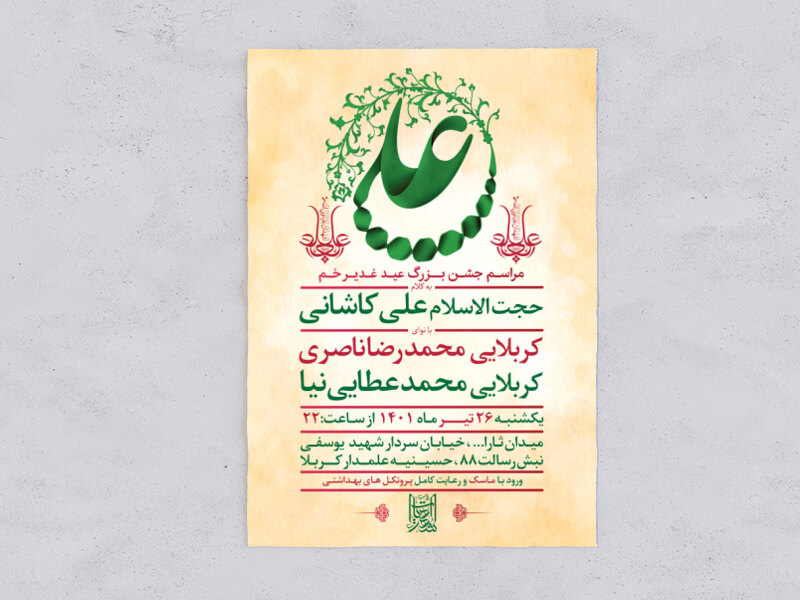 علی
مراسم جشن بزرگ عید غدیر خم
به کلام
حجت الاسلام علی کاشانی
با نوای
کربلایی محمدرضا ناصری
کربلایی محمد عطایی نیا
یکشنبه ۲۶ تیر ماه ۱۴۰۱ از ساعت: ۲۲
میدان ثارا...، خیابان سردار شهید یوسفی
نبش رسالت ۸۸، حسینیه علمدار کربلا
ورود با ماسک و رعایت کامل پروتکل های بهداشتی